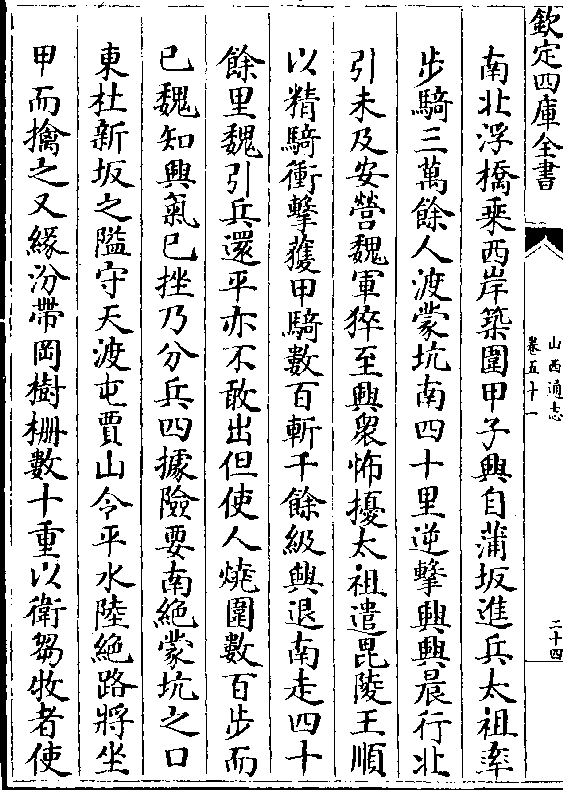 欽定四庫全書
山西通志
卷五十一
二十四
南北浮橋乘西岸築圍甲子興自蒲坂進兵太祖率
步騎三萬餘人渡蒙坑南四十里逆擊興興晨行北
引未及安營魏軍猝至興衆怖擾太祖遣毘陵王順
以精騎衝擊獲甲騎數百斬千餘級興退南走四十
餘里魏引兵還平亦不敢出但使人燒圍數百步而
已魏知興氣已挫乃分兵四據險要南絶蒙坑之口
東杜新坂之隘守天渡屯賈山令平水陸絶路將坐
甲而擒之又緣汾帶岡樹柵數十重以衛芻牧者使